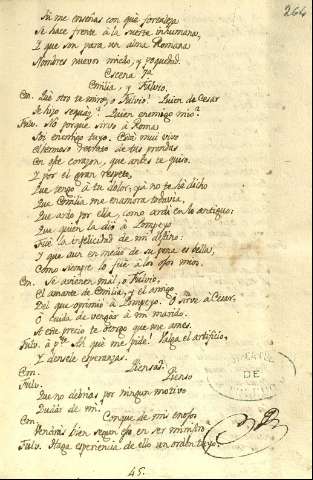 264
Tú me enseñas con qué fortaleza
Se hace frente à la suerte inhumana,
Y que son para un alma Romana
Nombres nuevos miedo, y poquedad.
Escena 7ª
Emilia, y Fulvio.
Em. Qué otro te miro, o Fulvio! Quien de Cesar
Te hizo sequáz? Quien enemigo mio?
Fulv. No porque sirvo à Roma
Soy enemigo tuyo. Está mui vivo
El hermoso destrozo de tus prendas
En este corazon, que antes te quiso.
Y por el gran respeto,
Que tengo à tu dolor, ya no te hé dicho
Que Emilia me enamora todavia,
Que ardo por ella, como ardí en lo antiguo:
Que quien la dió à Pompeyo
Fué la infelicidad de mi destino.
Y que aun en medio de su pena es bella,
Como siempre lo fué à los ojos mios.
Em. Se avienen mal, o Fulvio,
El amante de Emilia, y el amigo
Del que oprimió à Pompeyo. O sirve à Cesar,
O cuida de vengar à mi marido.
A este precio te otorgo que me ames.
Fulv. à pte. Ah qué me pide! Valga el artificio,
Y densele esperanzas.
Em. Piensas?
Fulv. Pienso
Que no debrias por ningun motivo
Dudár de mi.
Em. Conque de mis enojos
Vendrás bien segun eso en ser ministro?
Fulv. Haga esperiencia de ello un orden tuyo.
DE
45.